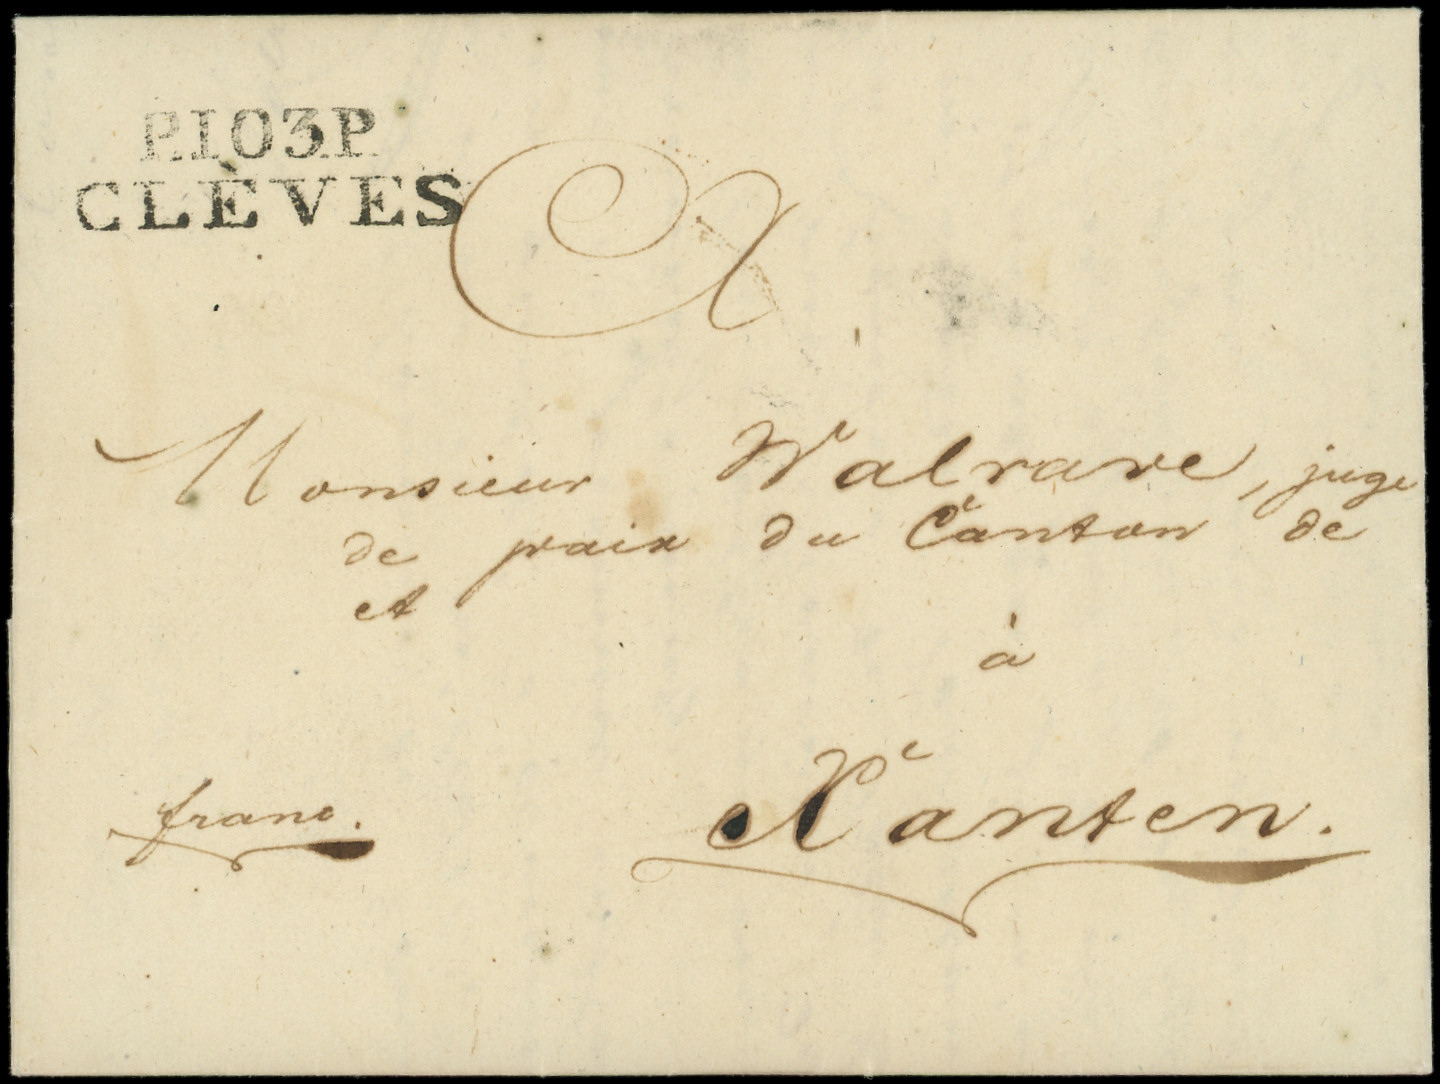 P.103.P.
CLÈVES
A
Monsieur Walrave, juge
de paix du Canton de
et
à
Xanten.
franc.